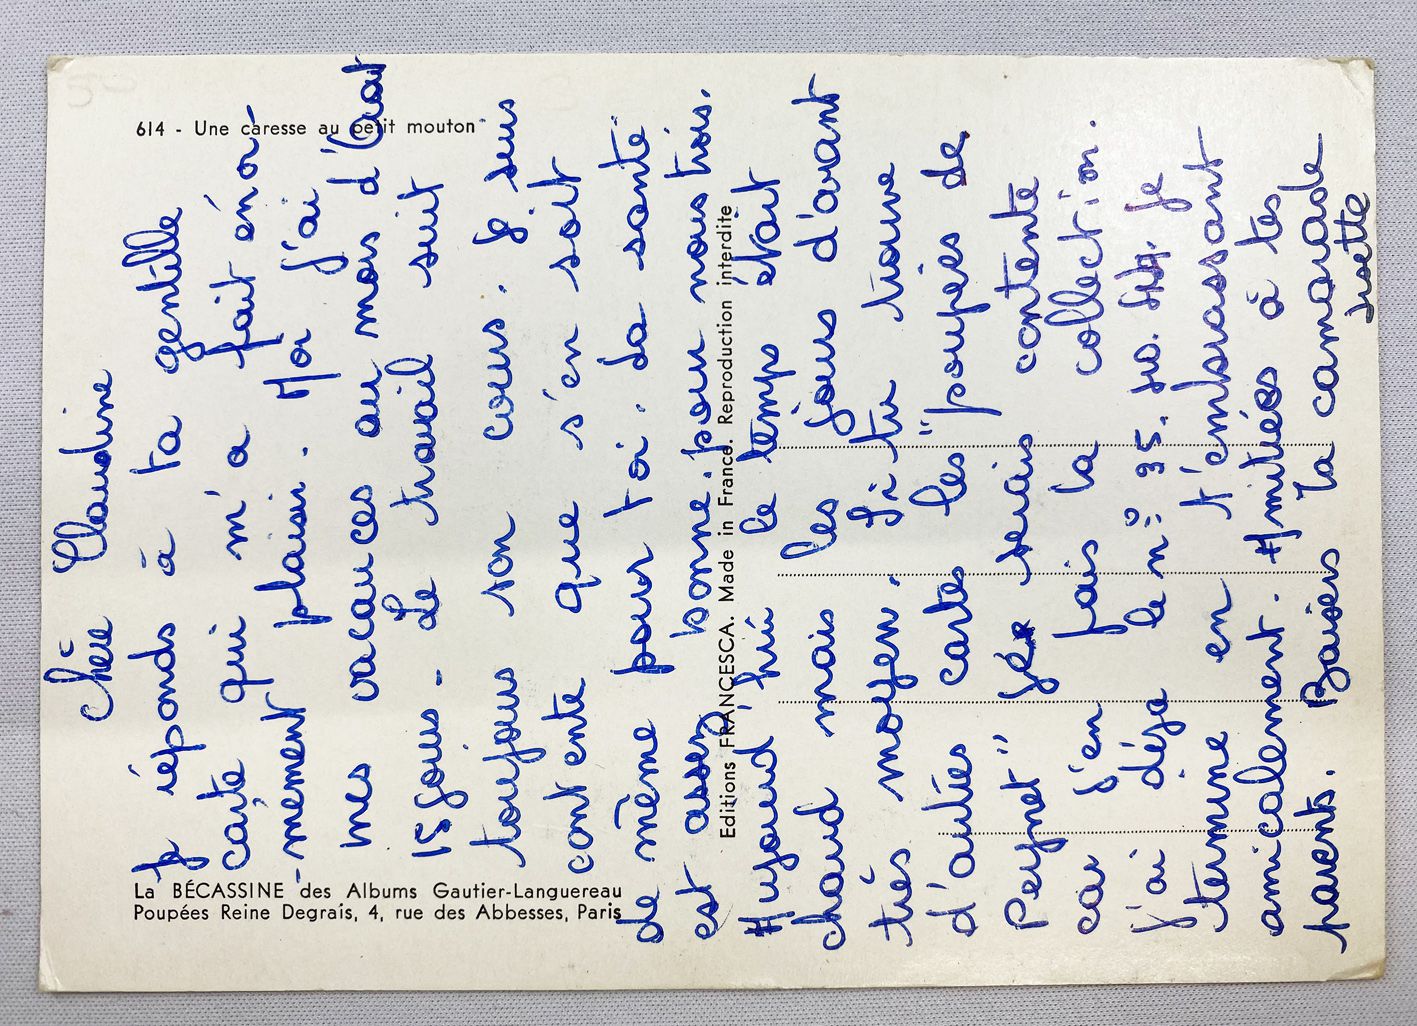 614 - Une caresse au petit mouton
La BÉCASSINE des Albums Gautier-Languereau
Poupées Reine Degrais, 4, rue des Abbesses, Paris
Editions FRANCESCA. Made in France. Reproduction interdite
Chère Claudine
Je réponds à ta gentille
carte qui m'a fait énor-
-mement plaisir. Moi j'ai
mes vacances au mois d'Août
15 jours - Le travail suit
toujours son cours. Je suis
contente que s'en soit
de même pour toi. La santé
est assez bonne pour nous trois.
Aujourd'hui le temps était
chaud mais les jours d'avant
très moyen. Si tu trouve
d'autres cartes les "poupées de
Peynet" je serais contente
car j'en fais la collection.
j'ai déja le n°: 35. 40. Je
termine en t'embrassant
amicalement. Amitiés à tes
parents. Baisers La camarade
Lisette